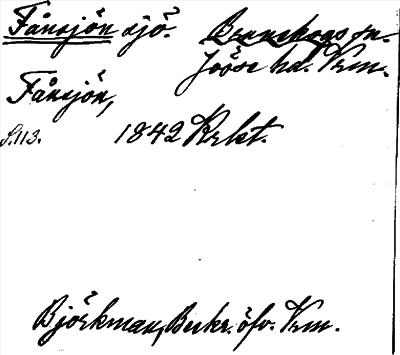 Fånsjön sjö Brunskogs sn.
Jösse hd. Vrm.
Fånsjön,
S.113. 1842 Krkt.
Björkman, Beskr. öfv. Vrm.